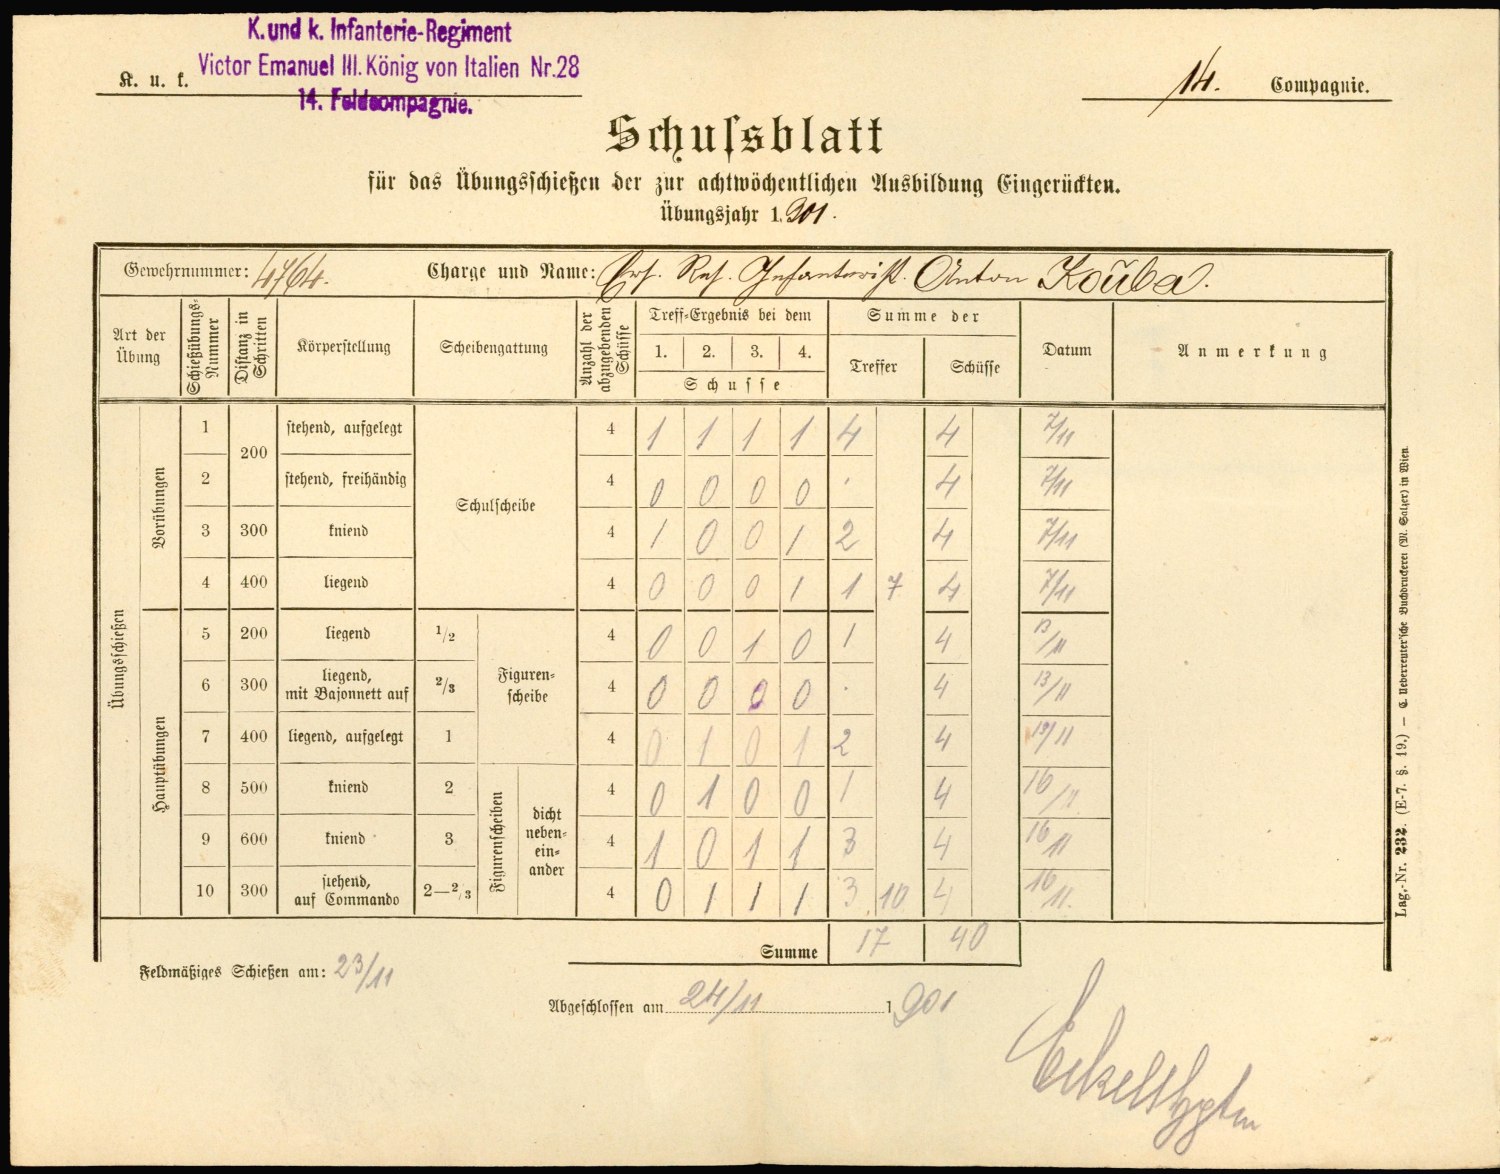 K. und k. Infanterie-Regiment
K. u. k. Victor Emanuel III. König von Italien Nr. 28
14. Feldcompagnie.
14. Compagnie.
Schuſsblatt
für das Übungsſchießen der zur achtwöchentlichen Ausbildung Eingerückten.
Übungsjahr 1.901.
Gewehrnummer: 4764. Charge und Name: Ers. Res. Infanterist. Anton Kouba.
Art der Übung Schießübungs-Nummer Diſtanz in Schritten Körperſtellung Scheibengattung Anzahl der abzugebenden Schüſſe Treff-Ergebnis bei dem 1. 2. 3. 4. Schuſſe Summe der Treffer Schüſſe Datum Anmerkung
Übungsſchießen
Vorübungen
1 200 ſtehend, aufgelegt Schulſcheibe 4 1 1 1 1 4 4 7/11
2 ſtehend, freihändig 4 0 0 0 0 · 4 7/11
3 300 kniend 4 1 0 0 1 2 4 7/11
4 400 liegend 4 0 0 0 1 1 7 4 7/11
Hauptübungen
5 200 liegend 1/2 Figuren-ſcheibe 4 0 0 1 0 1 4 13/11
6 300 liegend, mit Bajonnett auf 2/3 4 0 0 0 0 · 4 13/11
7 400 liegend, aufgelegt 1 4 0 1 0 1 2 4 /11
8 500 kniend 2 Figurenſcheiben dicht neben-ein-ander 4 0 1 0 0 1 4 16/11
9 600 kniend 3 4 1 0 1 1 3 4 16/11
10 300 ſtehend, auf Commando 2—2/3 4 0 1 1 1 3 10 4 16/11.
Summe 17 40
Feldmäßiges Schießen am: 23/11
Abgeſchloſſen am 24/11 1901
Hptm
Lag.-Nr. 232. (E-7. §. 19.) — C. Ueberreuter'ſche Buchdruckerei (M. Salzer) in Wien.